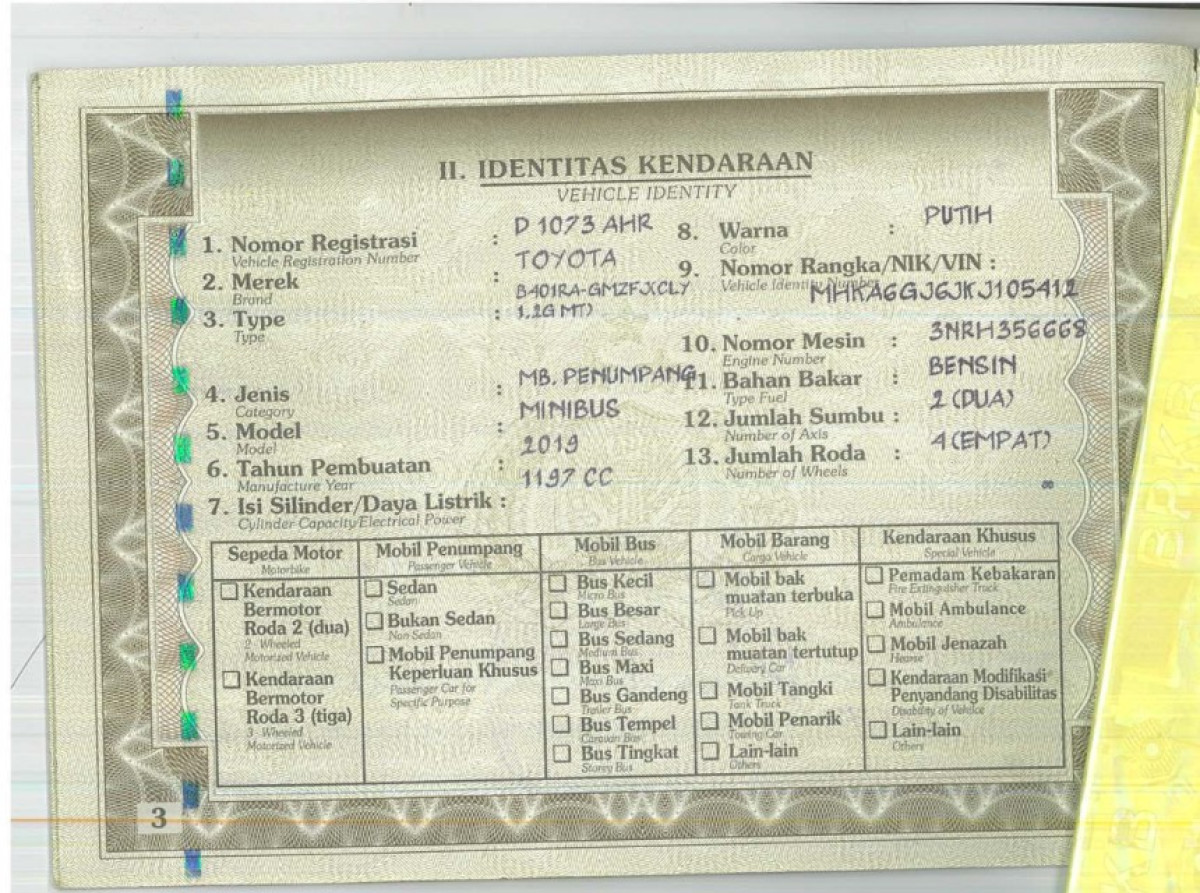 II. IDENTITAS KENDARAAN
VEHICLE IDENTITY
1. Nomor Registrasi : D 1073 AHR
Vehicle Registration Number
2. Merek : TOYOTA
Brand
3. Type : B401RA-GMZFJ(CLY
1.2G MT)
Type
4. Jenis : MB. PENUMPANG
Category
5. Model : MINIBUS
Model
6. Tahun Pembuatan : 2019
Manufacture Year
7. Isi Silinder/Daya Listrik : 1197 CC
Cylinder Capacity/Electrical Power
8. Warna : PUTIH
Color
9. Nomor Rangka/NIK/VIN :
Vehicle Identity Number
MHKA6GJ6JKJ105412
10. Nomor Mesin : 3NRH356668
Engine Number
11. Bahan Bakar : BENSIN
Type Fuel
12. Jumlah Sumbu : 2 (DUA)
Number of Axis
13. Jumlah Roda : 4 (EMPAT)
Number of Wheels
Sepeda Motor
Motorbike
Kendaraan
Bermotor
Roda 2 (dua)
2 - Wheeled
Motorized Vehicle
Kendaraan
Bermotor
Roda 3 (tiga)
3 - Wheeled
Motorized Vehicle
Mobil Penumpang
Passenger Vehicle
Sedan
Sedan
Bukan Sedan
Non Sedan
Mobil Penumpang
Keperluan Khusus
Passenger Car for
Specific Purpose
Mobil Bus
Bus Vehicle
Bus Kecil
Micro Bus
Bus Besar
Large Bus
Bus Sedang
Medium Bus
Bus Maxi
Maxi Bus
Bus Gandeng
Trailer Bus
Bus Tempel
Caravan Bus
Bus Tingkat
Storey Bus
Mobil Barang
Cargo Vehicle
Mobil bak
muatan terbuka
Pick Up
Mobil bak
muatan tertutup
Delivery Car
Mobil Tangki
Tank Truck
Mobil Penarik
Towing Car
Lain-lain
Others
Kendaraan Khusus
Special Vehicle
Pemadam Kebakaran
Fire Extinguisher Truck
Mobil Ambulance
Ambulance
Mobil Jenazah
Hearse
Kendaraan Modifikasi
Penyandang Disabilitas
Disability of Vehicle
Lain-lain
Others
3